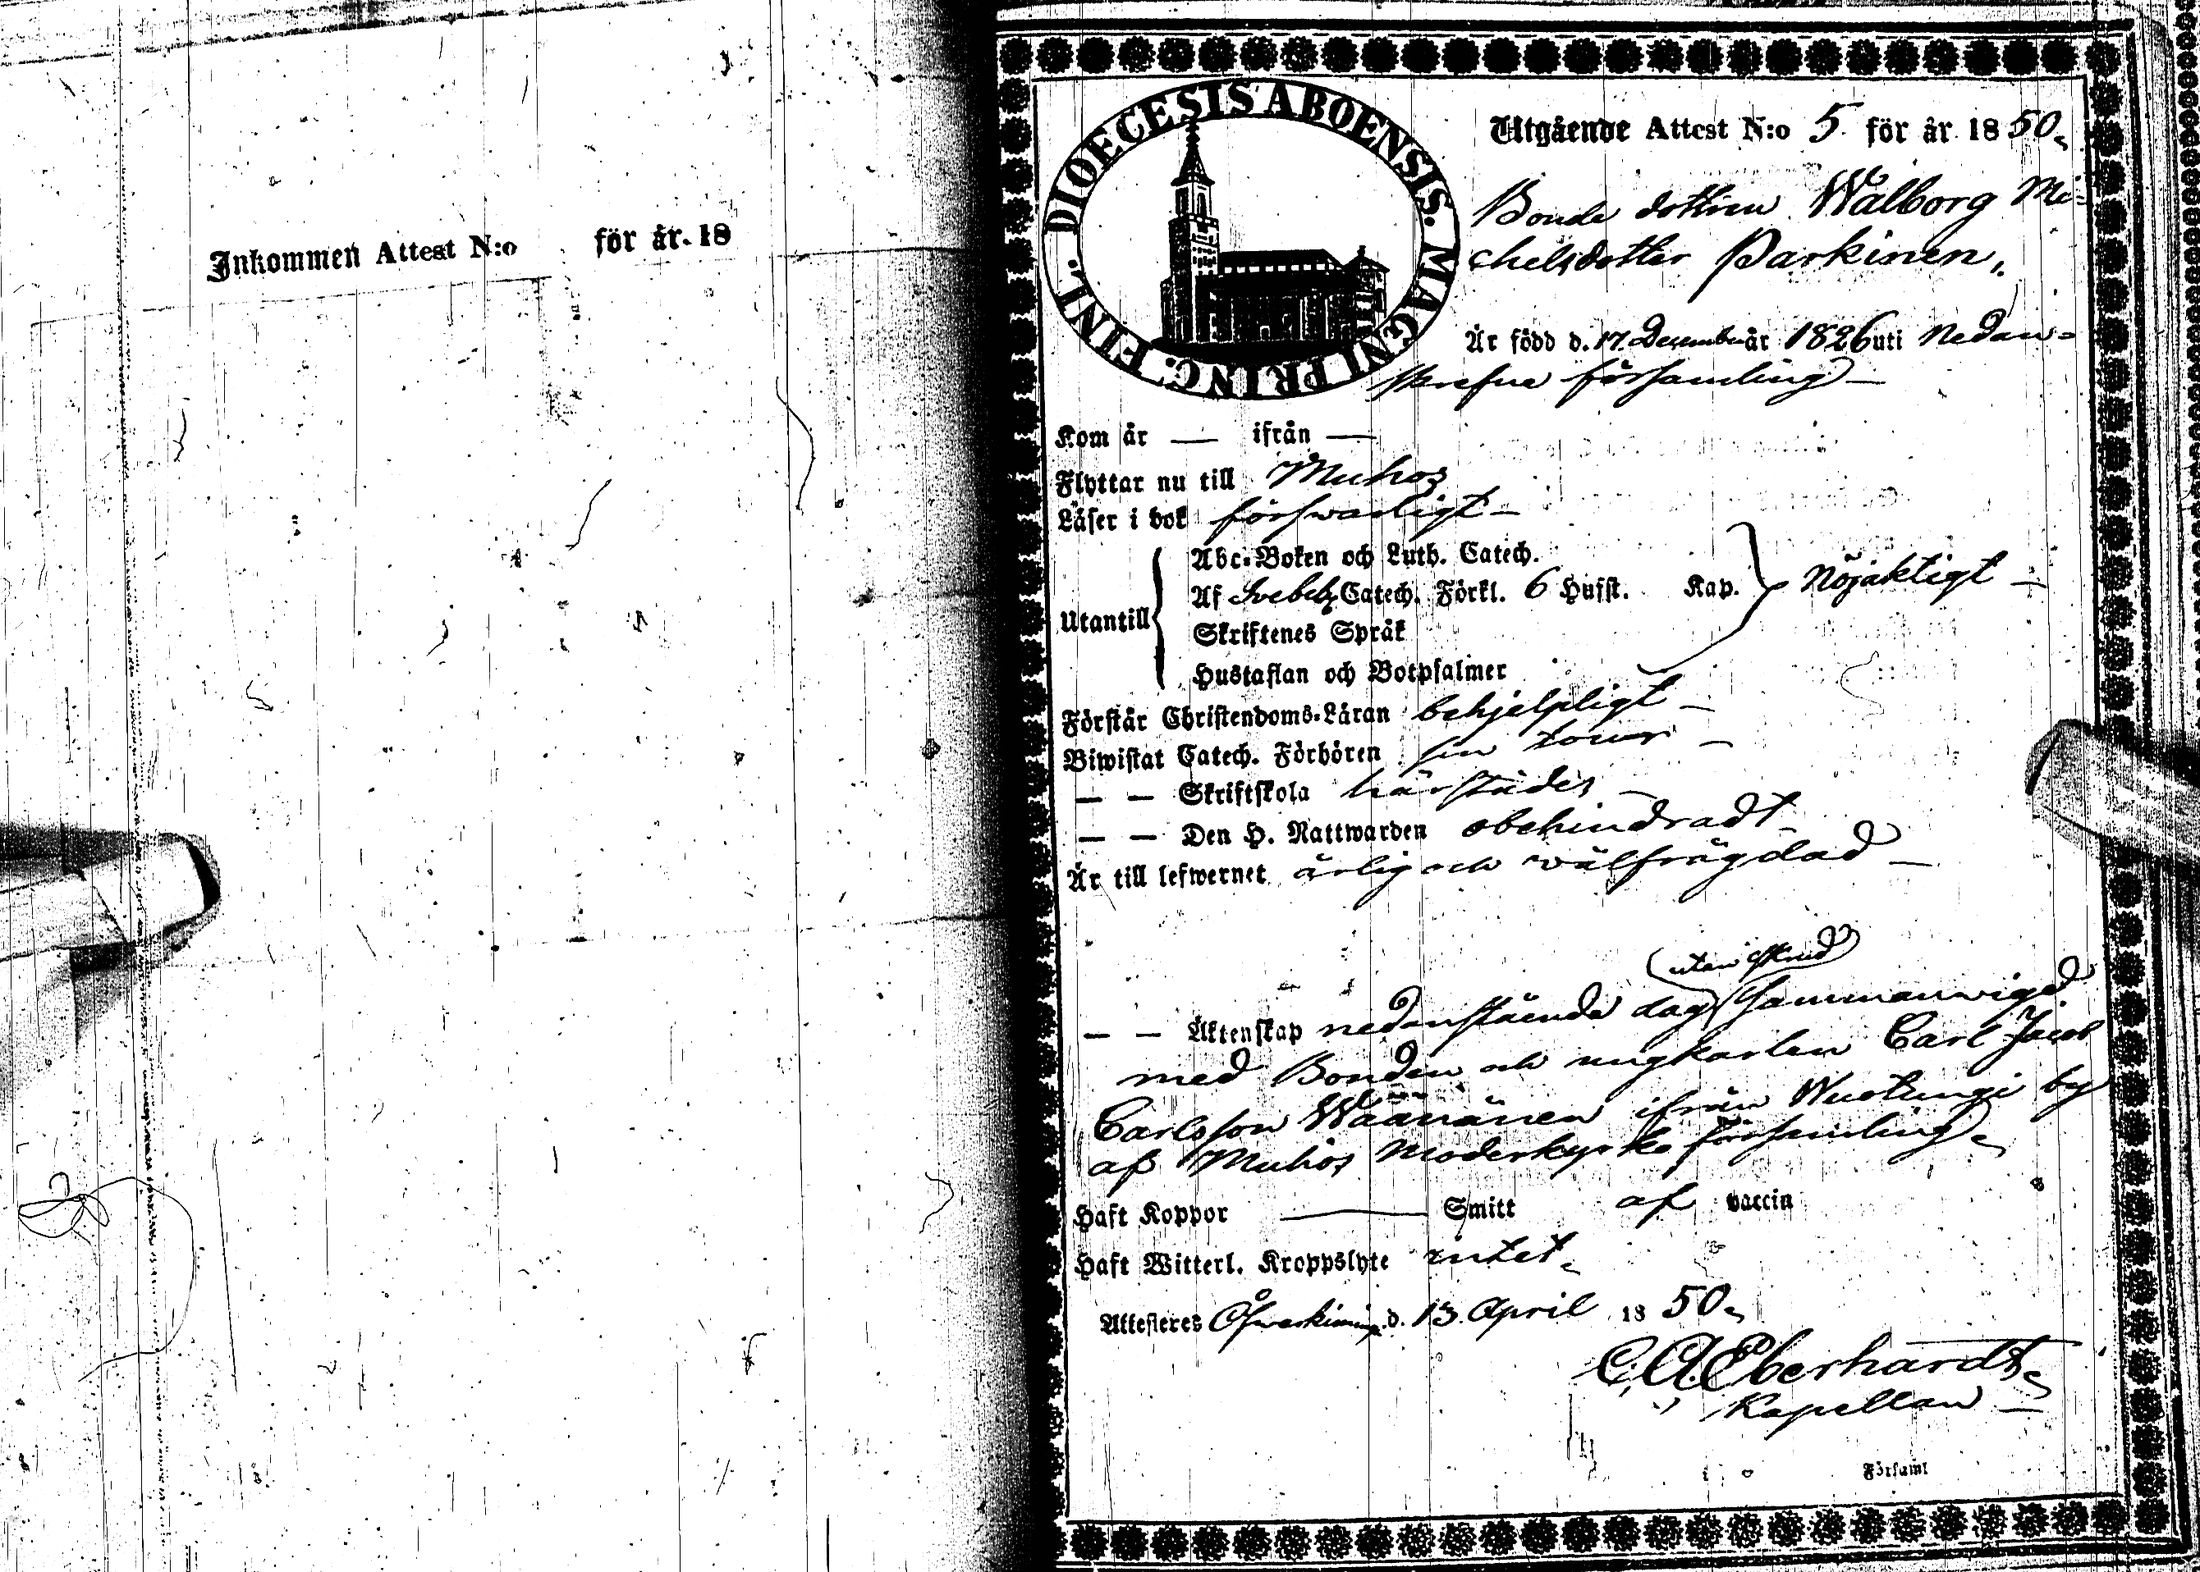 Inkommen Attest N:o för år 18
DIOECESIS ABOENSIS. MAGNI PRINC. FINL.
Utgående Attest N:o 5 för år 1850.
Bonde dottren Walborg Mi=
chelsdotter Parkinen,
Är född d. 17. December år 1826 uti Nedan=
skrefne församling —
Kom år — ifrån —
Flyttar nu till Muhos
Läser i bok förswarligt —
Abc-Boken och Luth. Catech.
Af Svebelii Catech. Förkl. 6 Hufst. Kap. Nöjaktigt —
Utantill
Skriftenes Språk
Hustaflan och Botpsalmer
Förstår Christendoms-Läran behjelpligt —
Biwistat Catech. Förhören sin tour —
— — Skriftskola härstädes —
— — Den H. Nattwarden obehindradt
Är till lefwernet ärlig och wälfrägdad —
utan
— — Äktenskap nedanstående dag sammanwigd
med Bonden och ungkarlen Carl Jacob
Carlsson Wäänänen ifrån by
af Muhos Moderkyrko församling.
Haft Koppor — Smitt af vaccin
Haft Witterl. Kroppslyte intet.
Attesteres Öfwerkiming d. 13 April 1850.
C. A. Eberhardt.
Kapellan —
Församl